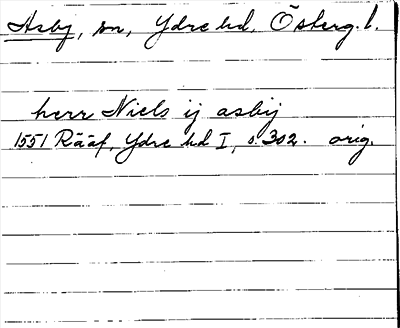 Asby, sn, Ydre hd, Österg. l.
herr Niels ij asbij
1551 Rääf, Ydre hd I, s. 302. orig.